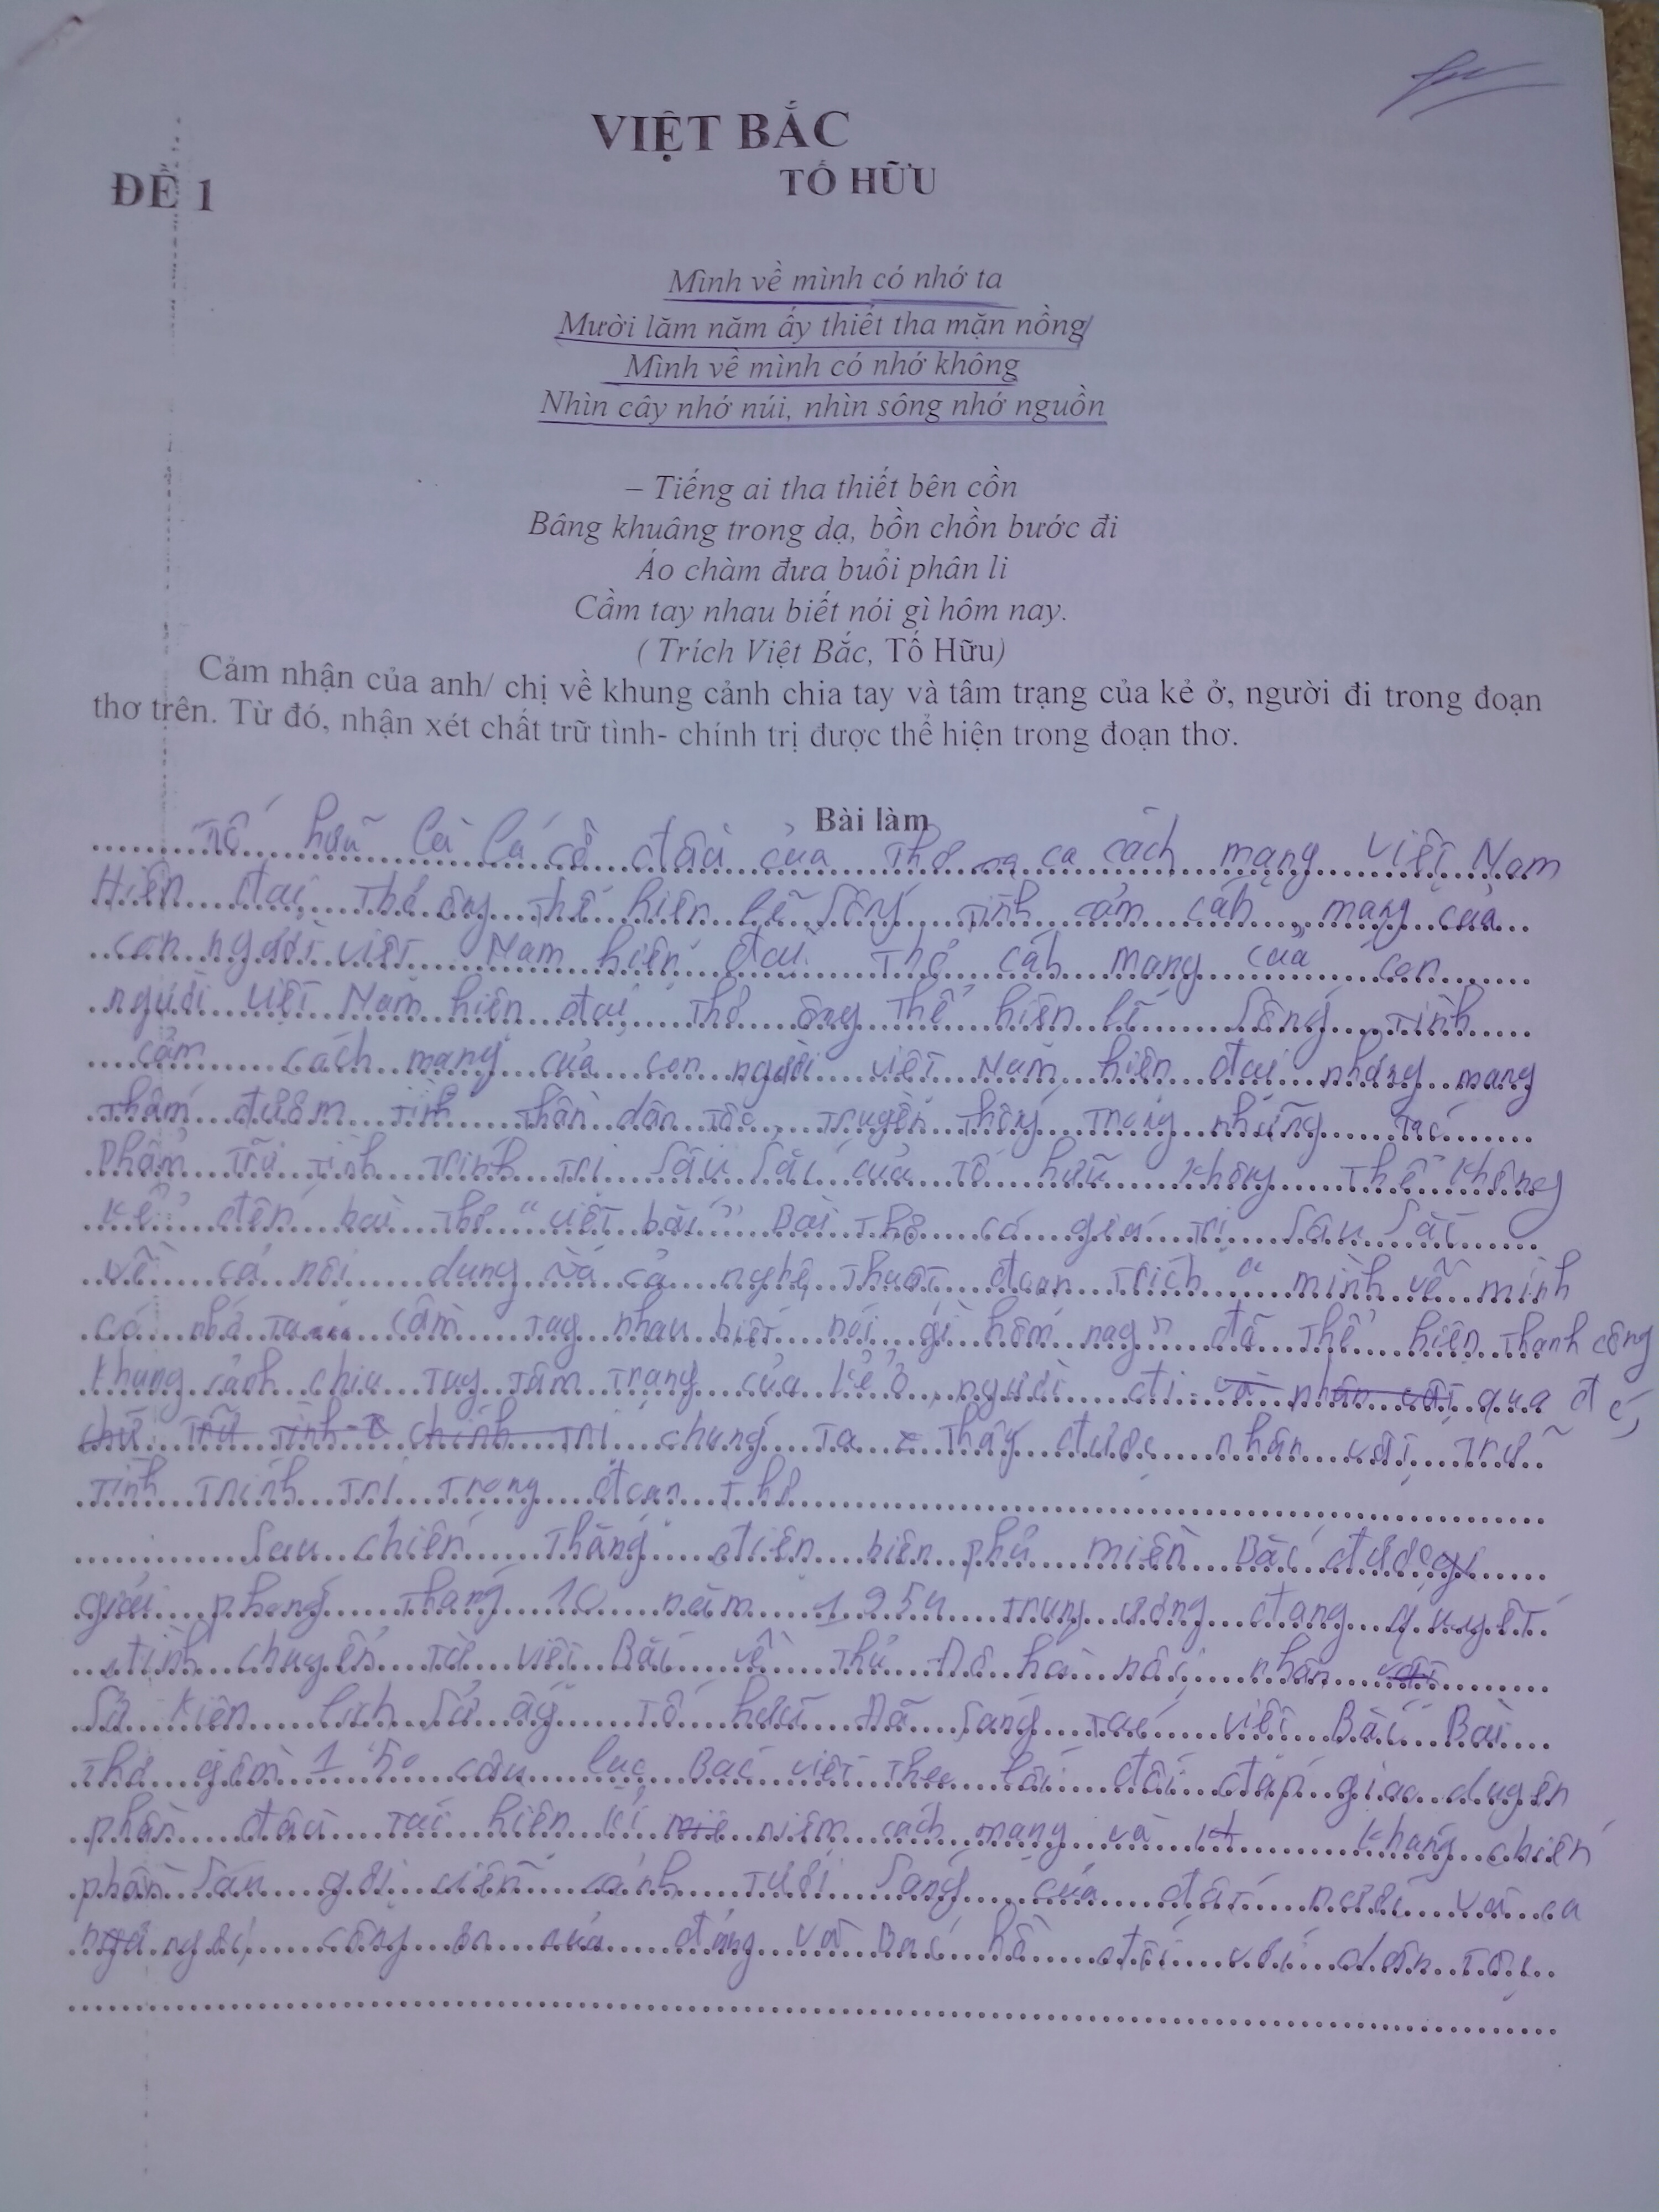 VIỆT BẮC
TỐ HỮU
ĐỀ 1
Mình về mình có nhớ ta
Mười lăm năm ấy thiết tha mặn nồng
Mình về mình có nhớ không
Nhìn cây nhớ núi, nhìn sông nhớ nguồn
– Tiếng ai tha thiết bên cồn
Bâng khuâng trong dạ, bồn chồn bước đi
Áo chàm đưa buổi phân li
Cầm tay nhau biết nói gì hôm nay.
( Trích Việt Bắc, Tố Hữu)
Cảm nhận của anh/ chị về khung cảnh chia tay và tâm trạng của kẻ ở, người đi trong đoạn
thơ trên. Từ đó, nhận xét chất trữ tình- chính trị được thể hiện trong đoạn thơ.
Bài làm
Tố hữu là lá cờ đầu của thơ ca cách mạng Việt Nam
Hiện đại, thơ ông thể hiện lẽ sống tình cảm cách mạng của
con người việt Nam hiện đại. Thơ cách mạng của con
người việt Nam hiện đại thơ ông thể hiện lẽ sống tình
cảm cách mạng của con người việt Nam hiện đại nhưng mang
thấm đượm tinh thần dân tộc truyền thống trong những tác
phẩm trữ tình trính trị sâu sắc của tố hữu không thể không
kể đến bài thơ "việt bắc" Bài thơ có giá trị sâu sắc
về cả nội dung và cả nghệ thuật đoạn trích " mình về mình
có nhớ ta ... cầm tay nhau biết nói gì hôm nay" đã thể hiện thành công
khung cảnh chia tay tâm trạng của kẻ ở, người đi qua đó
chúng ta thấy được nhân vật trữ
tình trính trị trong đoạn thơ
Sau chiến thắng điện biên phủ miền Bắc được
giải phóng tháng 10 năm 1954 trung ương đang quyết
định chuyển từ việt Bắc về thủ Đô hà nội, nhân
sự kiện lịch sử ấy tố hữu Đã sáng tác việt Bắc Bài
thơ gồm 150 câu lục Bác viết theo lối đối đáp giao duyên
phần đầu tái hiện kỉ niệm cách mạng và kháng chiến
phần sau gợi viễn cảnh tươi sáng của đất nước và ca
ngợi công ơn của đảng và Bác hồ đối với dân tộc.